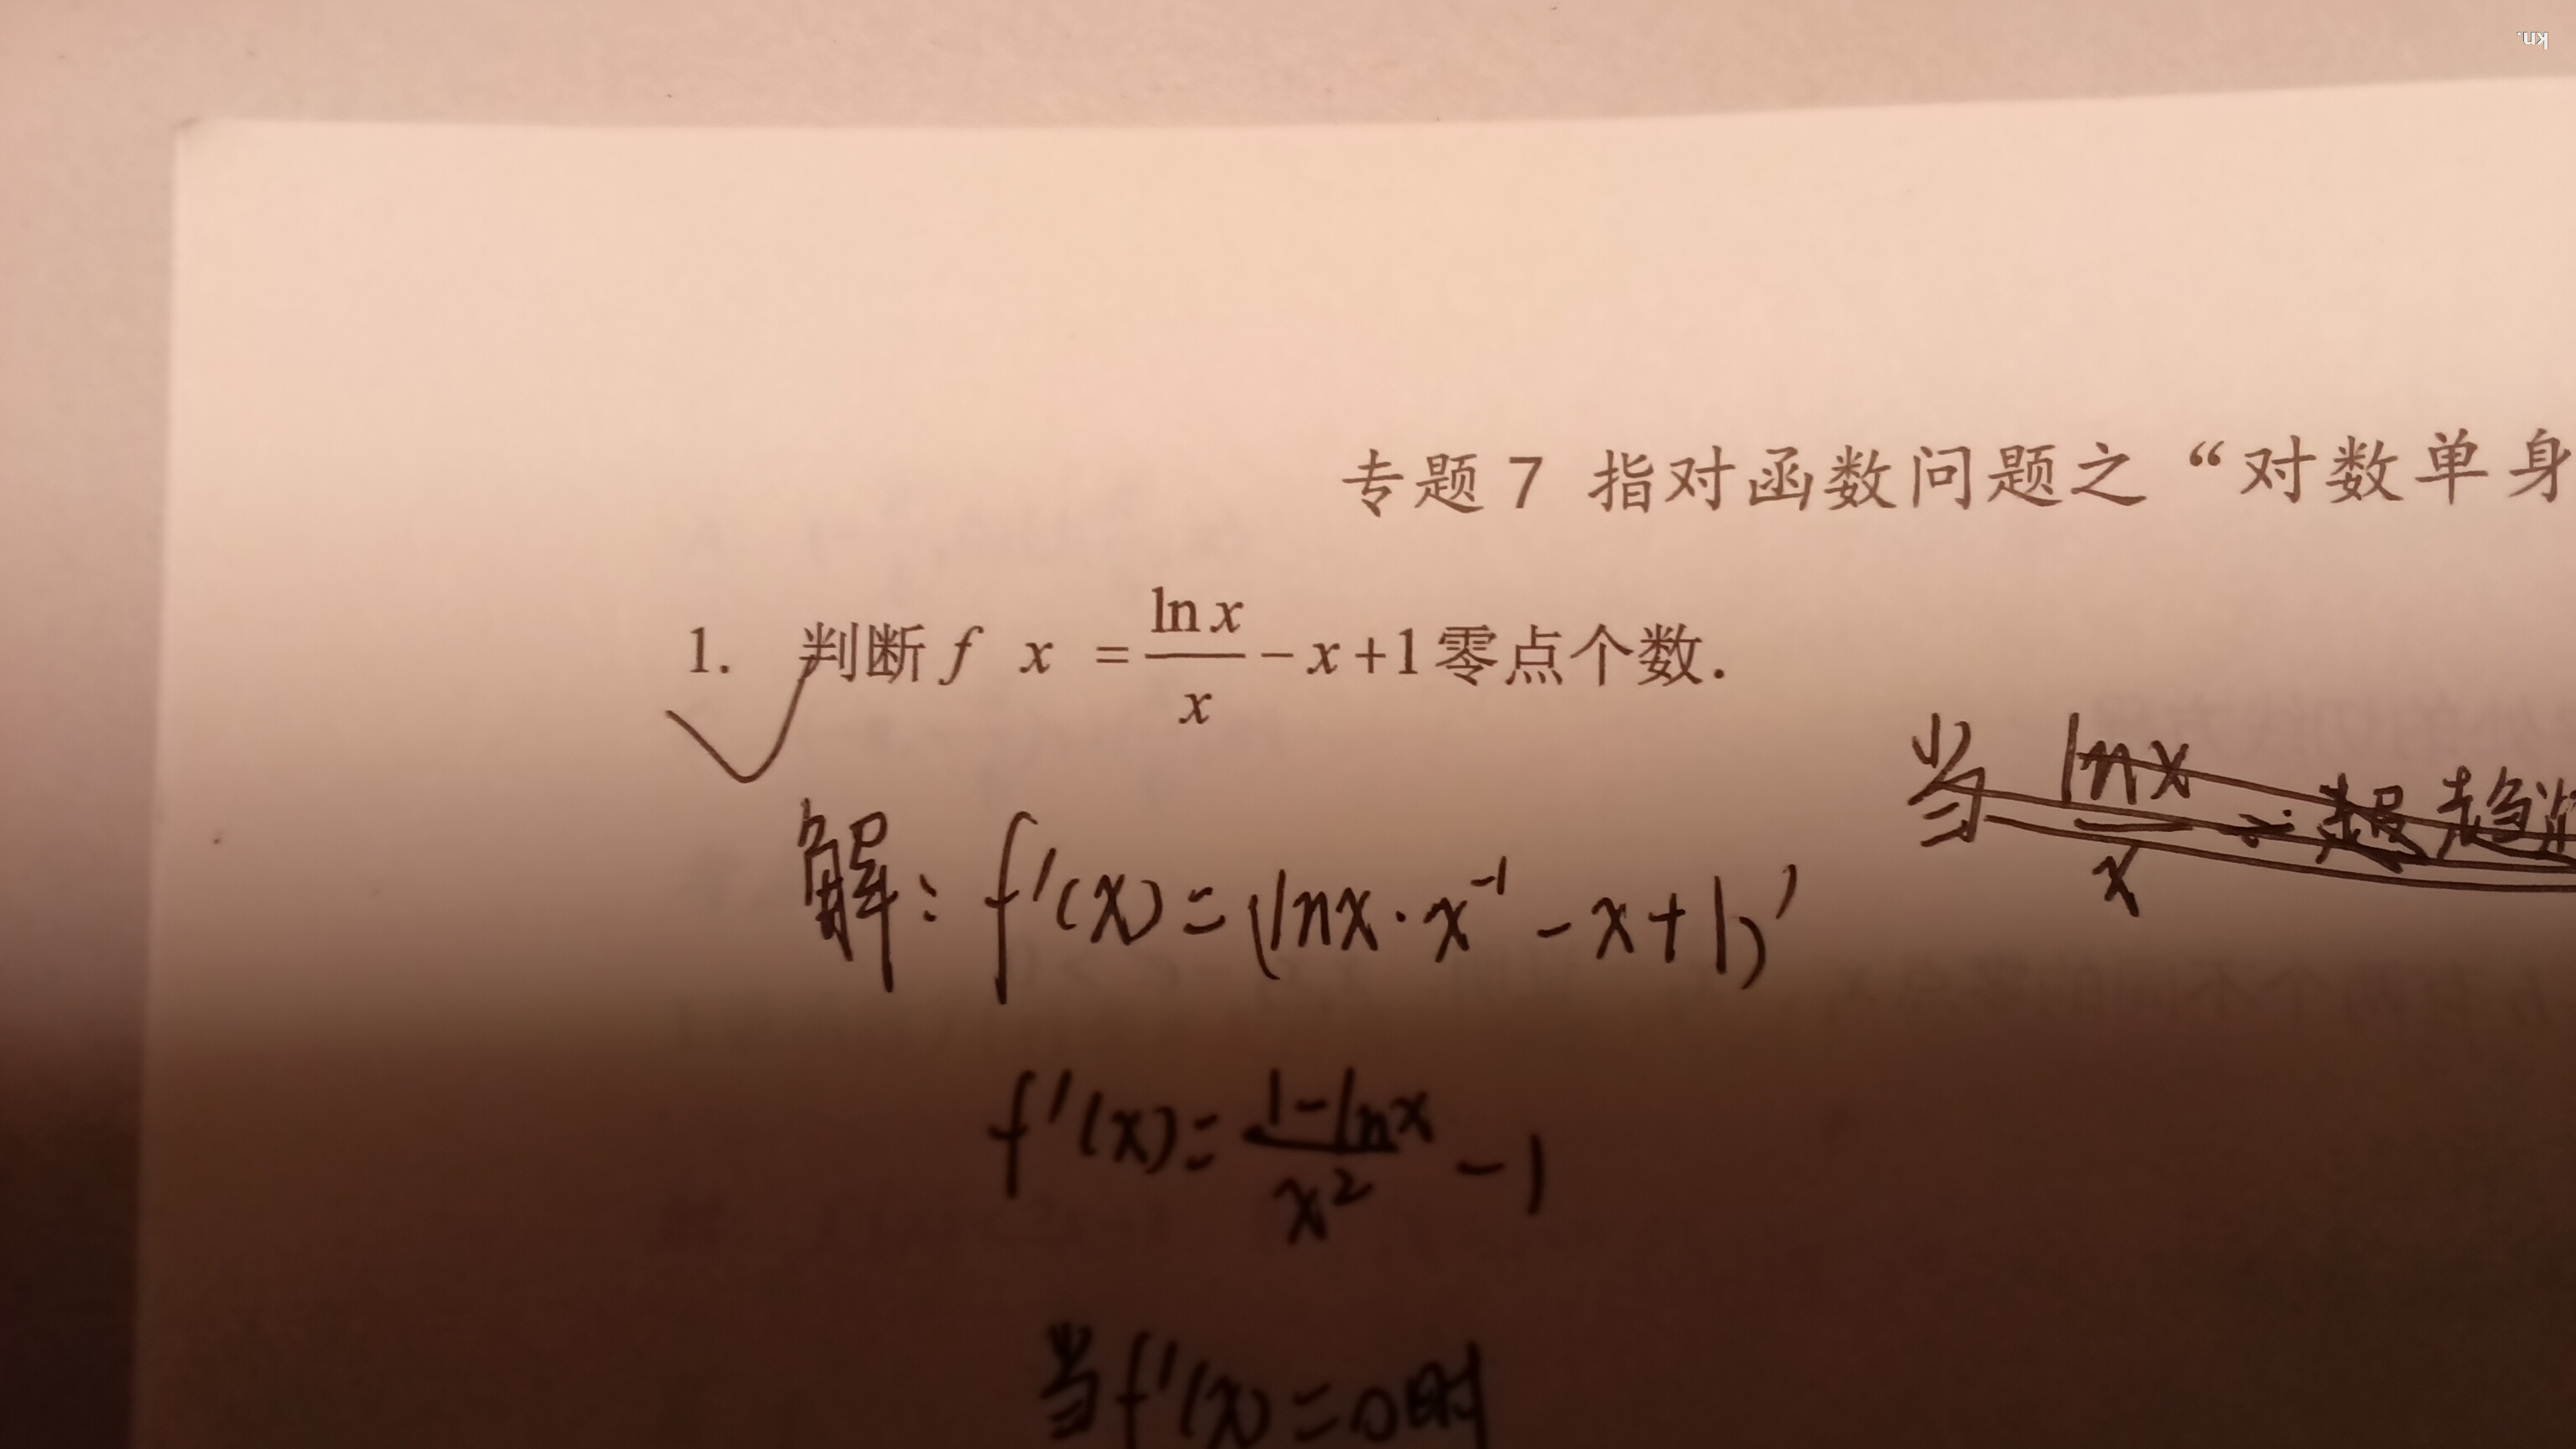 kn.
专题7 指对函数问题之“对数单身
1. 判断 f x = \frac{\ln x}{x} - x + 1 零点个数.
当 \frac{\ln x}{x}
解: f'(x) = (lnx · x^{-1} - x + 1)'
f'(x) = \frac{1 - \ln x}{x^2} - 1
当 f'(x) = 0 时